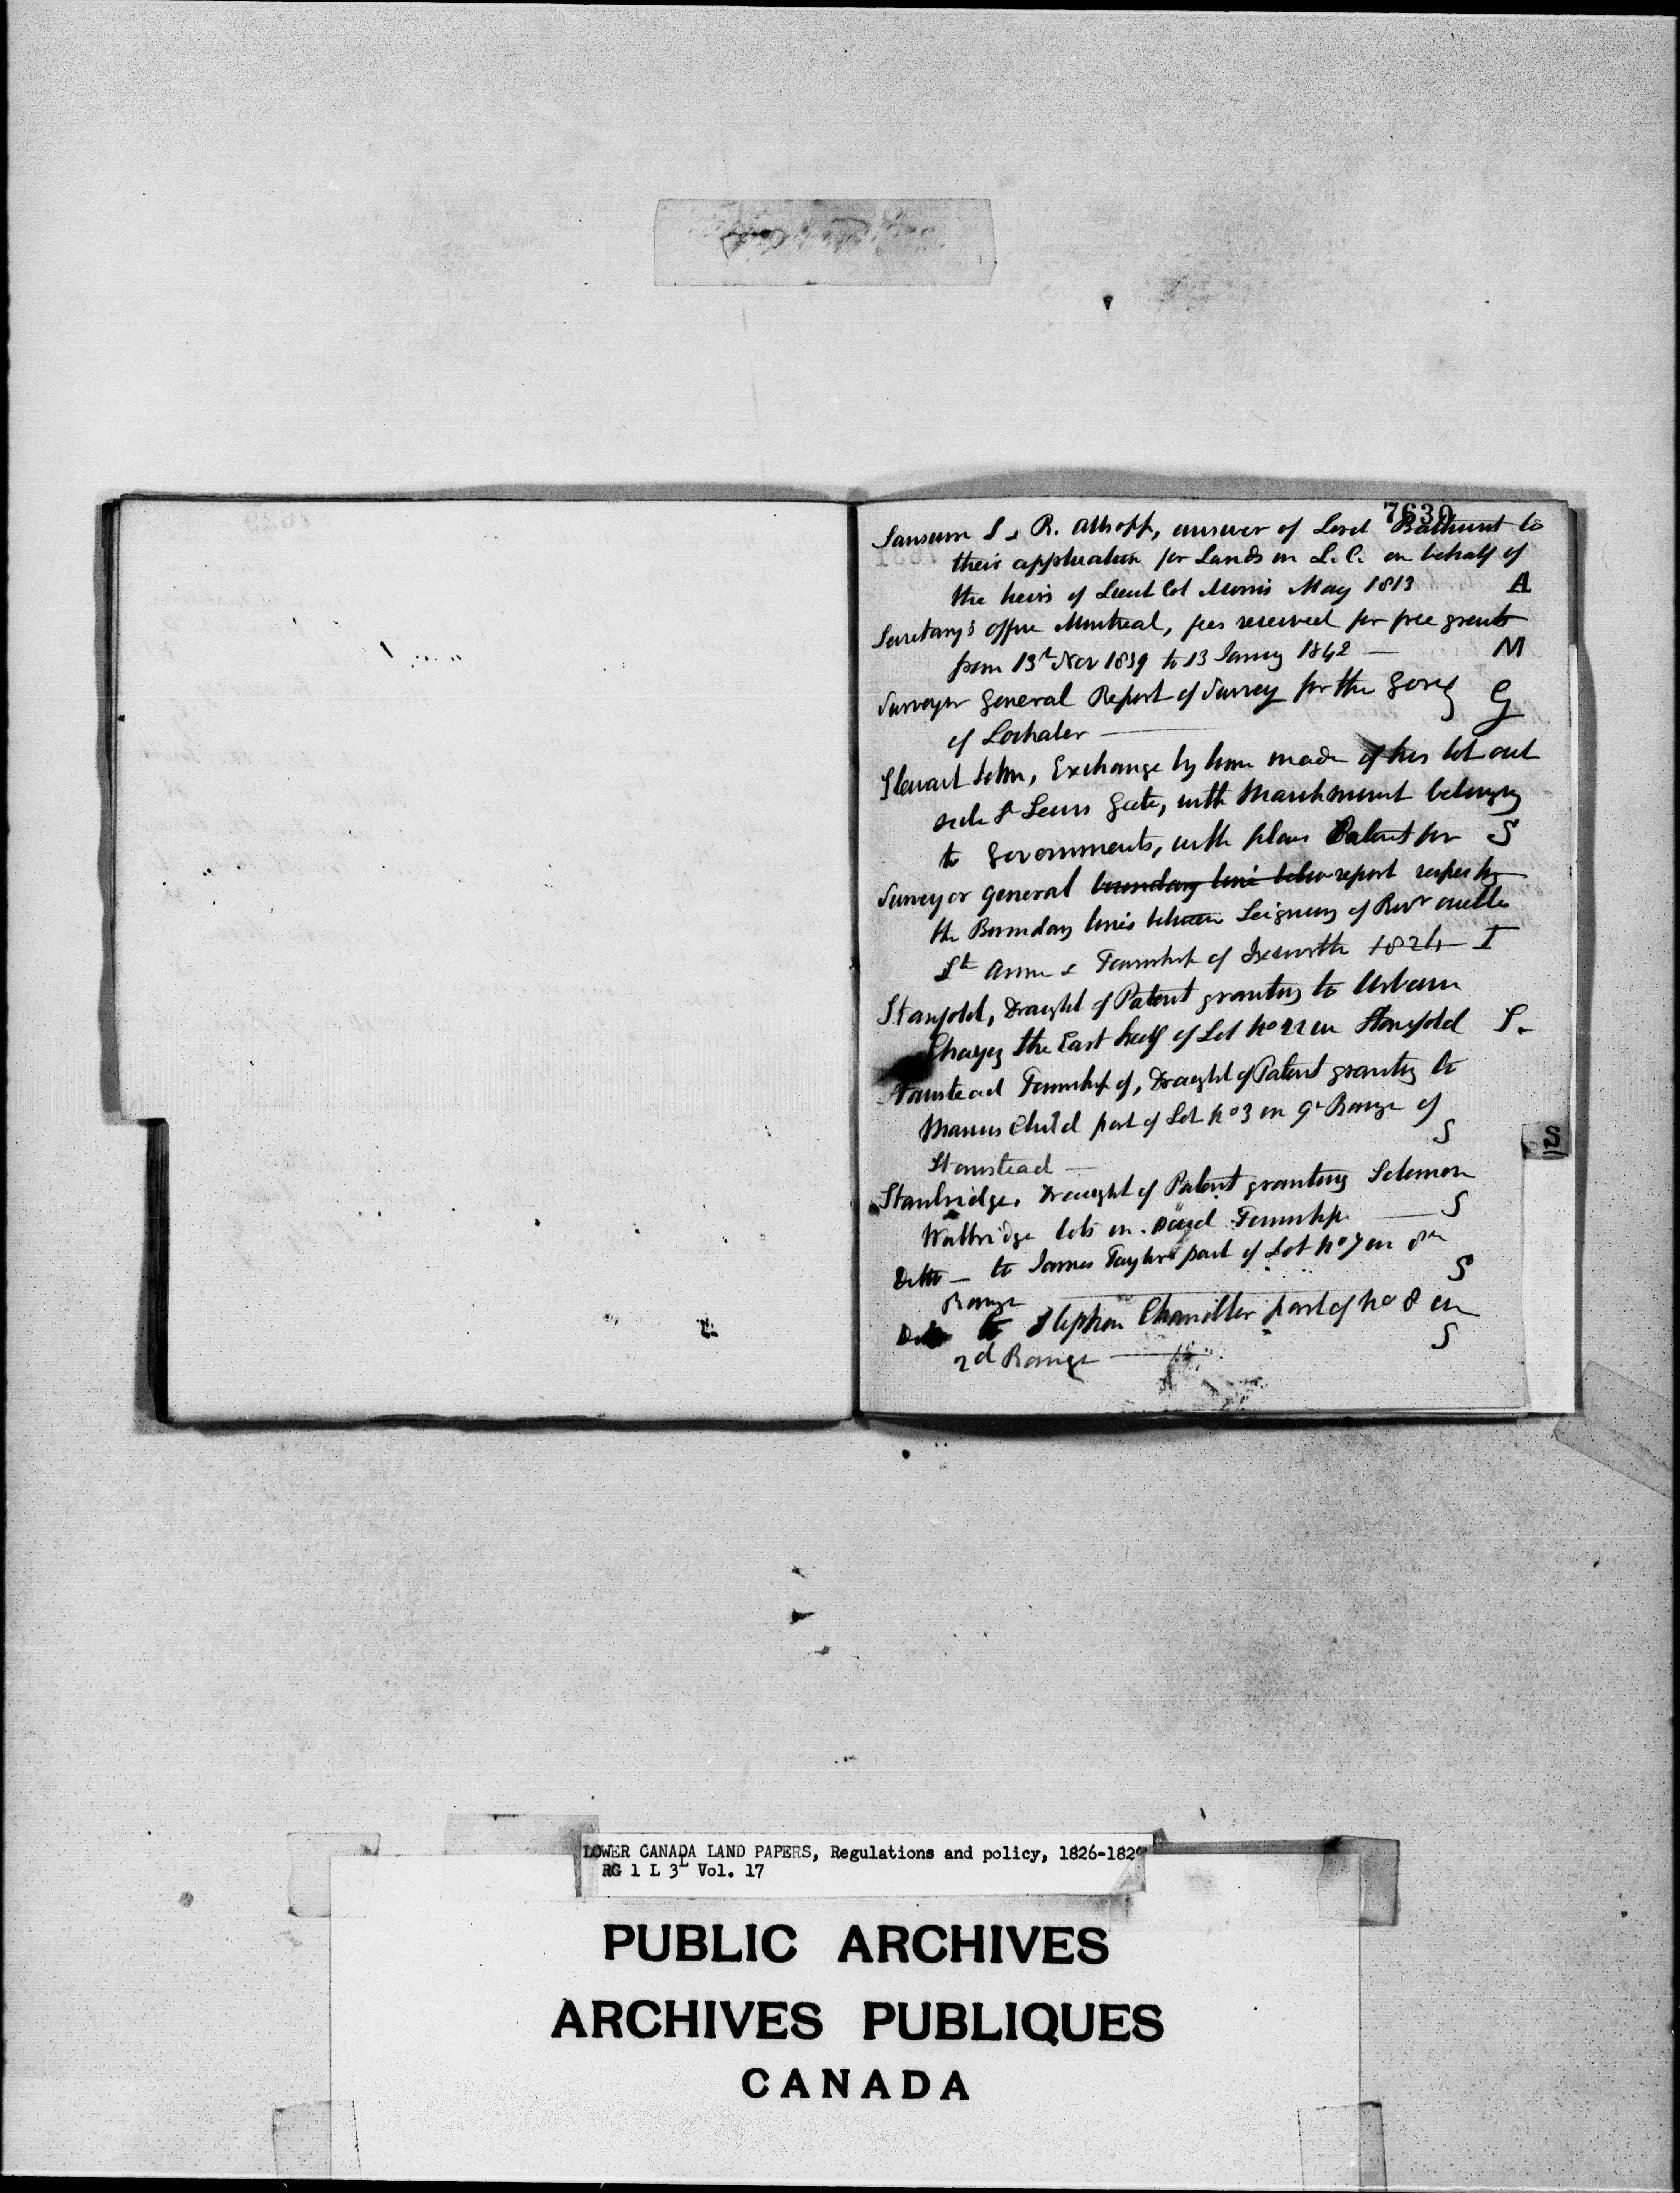 7630
Sansum S & R. Allsopp, answer of Lord Bathurst to
their application for Lands in L. C. on behalf of
the heirs of Lieut Col Morris May 1813 A
Secretary's Office Montreal, fees received for free grants
from 13th Nov 1839 to 13 Janry 1842 — M
Surveyor General Report of Survey for the Gore
of Lochaber — G
Stewart John, Exchange by him made of his lot out
side St Lewis Gate, with Marchmount belonging
to Governments, with plans Patent for S
Surveyor General boundary line betw report respectg
the Boundary lines between Seigneury of Rivr ouelle
St Anne & Township of Ixworth 1824 — I
Stanfold, Draught of Patent granting to Urbain
the East half of Lot No 22 in Stanfold S.
Stanstead Township of, Draught of Patent granting to
Marcus Child part of Lot No 3 in 9th Range of
Stanstead — S
Stanbridge. Draught of Patent granting Solomon
Walbridge lots in said Township — S
Ditto — to James Taylor part of Lot No 7 in 8th
Range — S
Ditto to Stephen Chandler part of No 8 in
2d Range — S
S
LOWER CANADA LAND PAPERS, Regulations and policy, 1826-182
RG 1 L 3L Vol. 17
PUBLIC ARCHIVES
ARCHIVES PUBLIQUES
CANADA